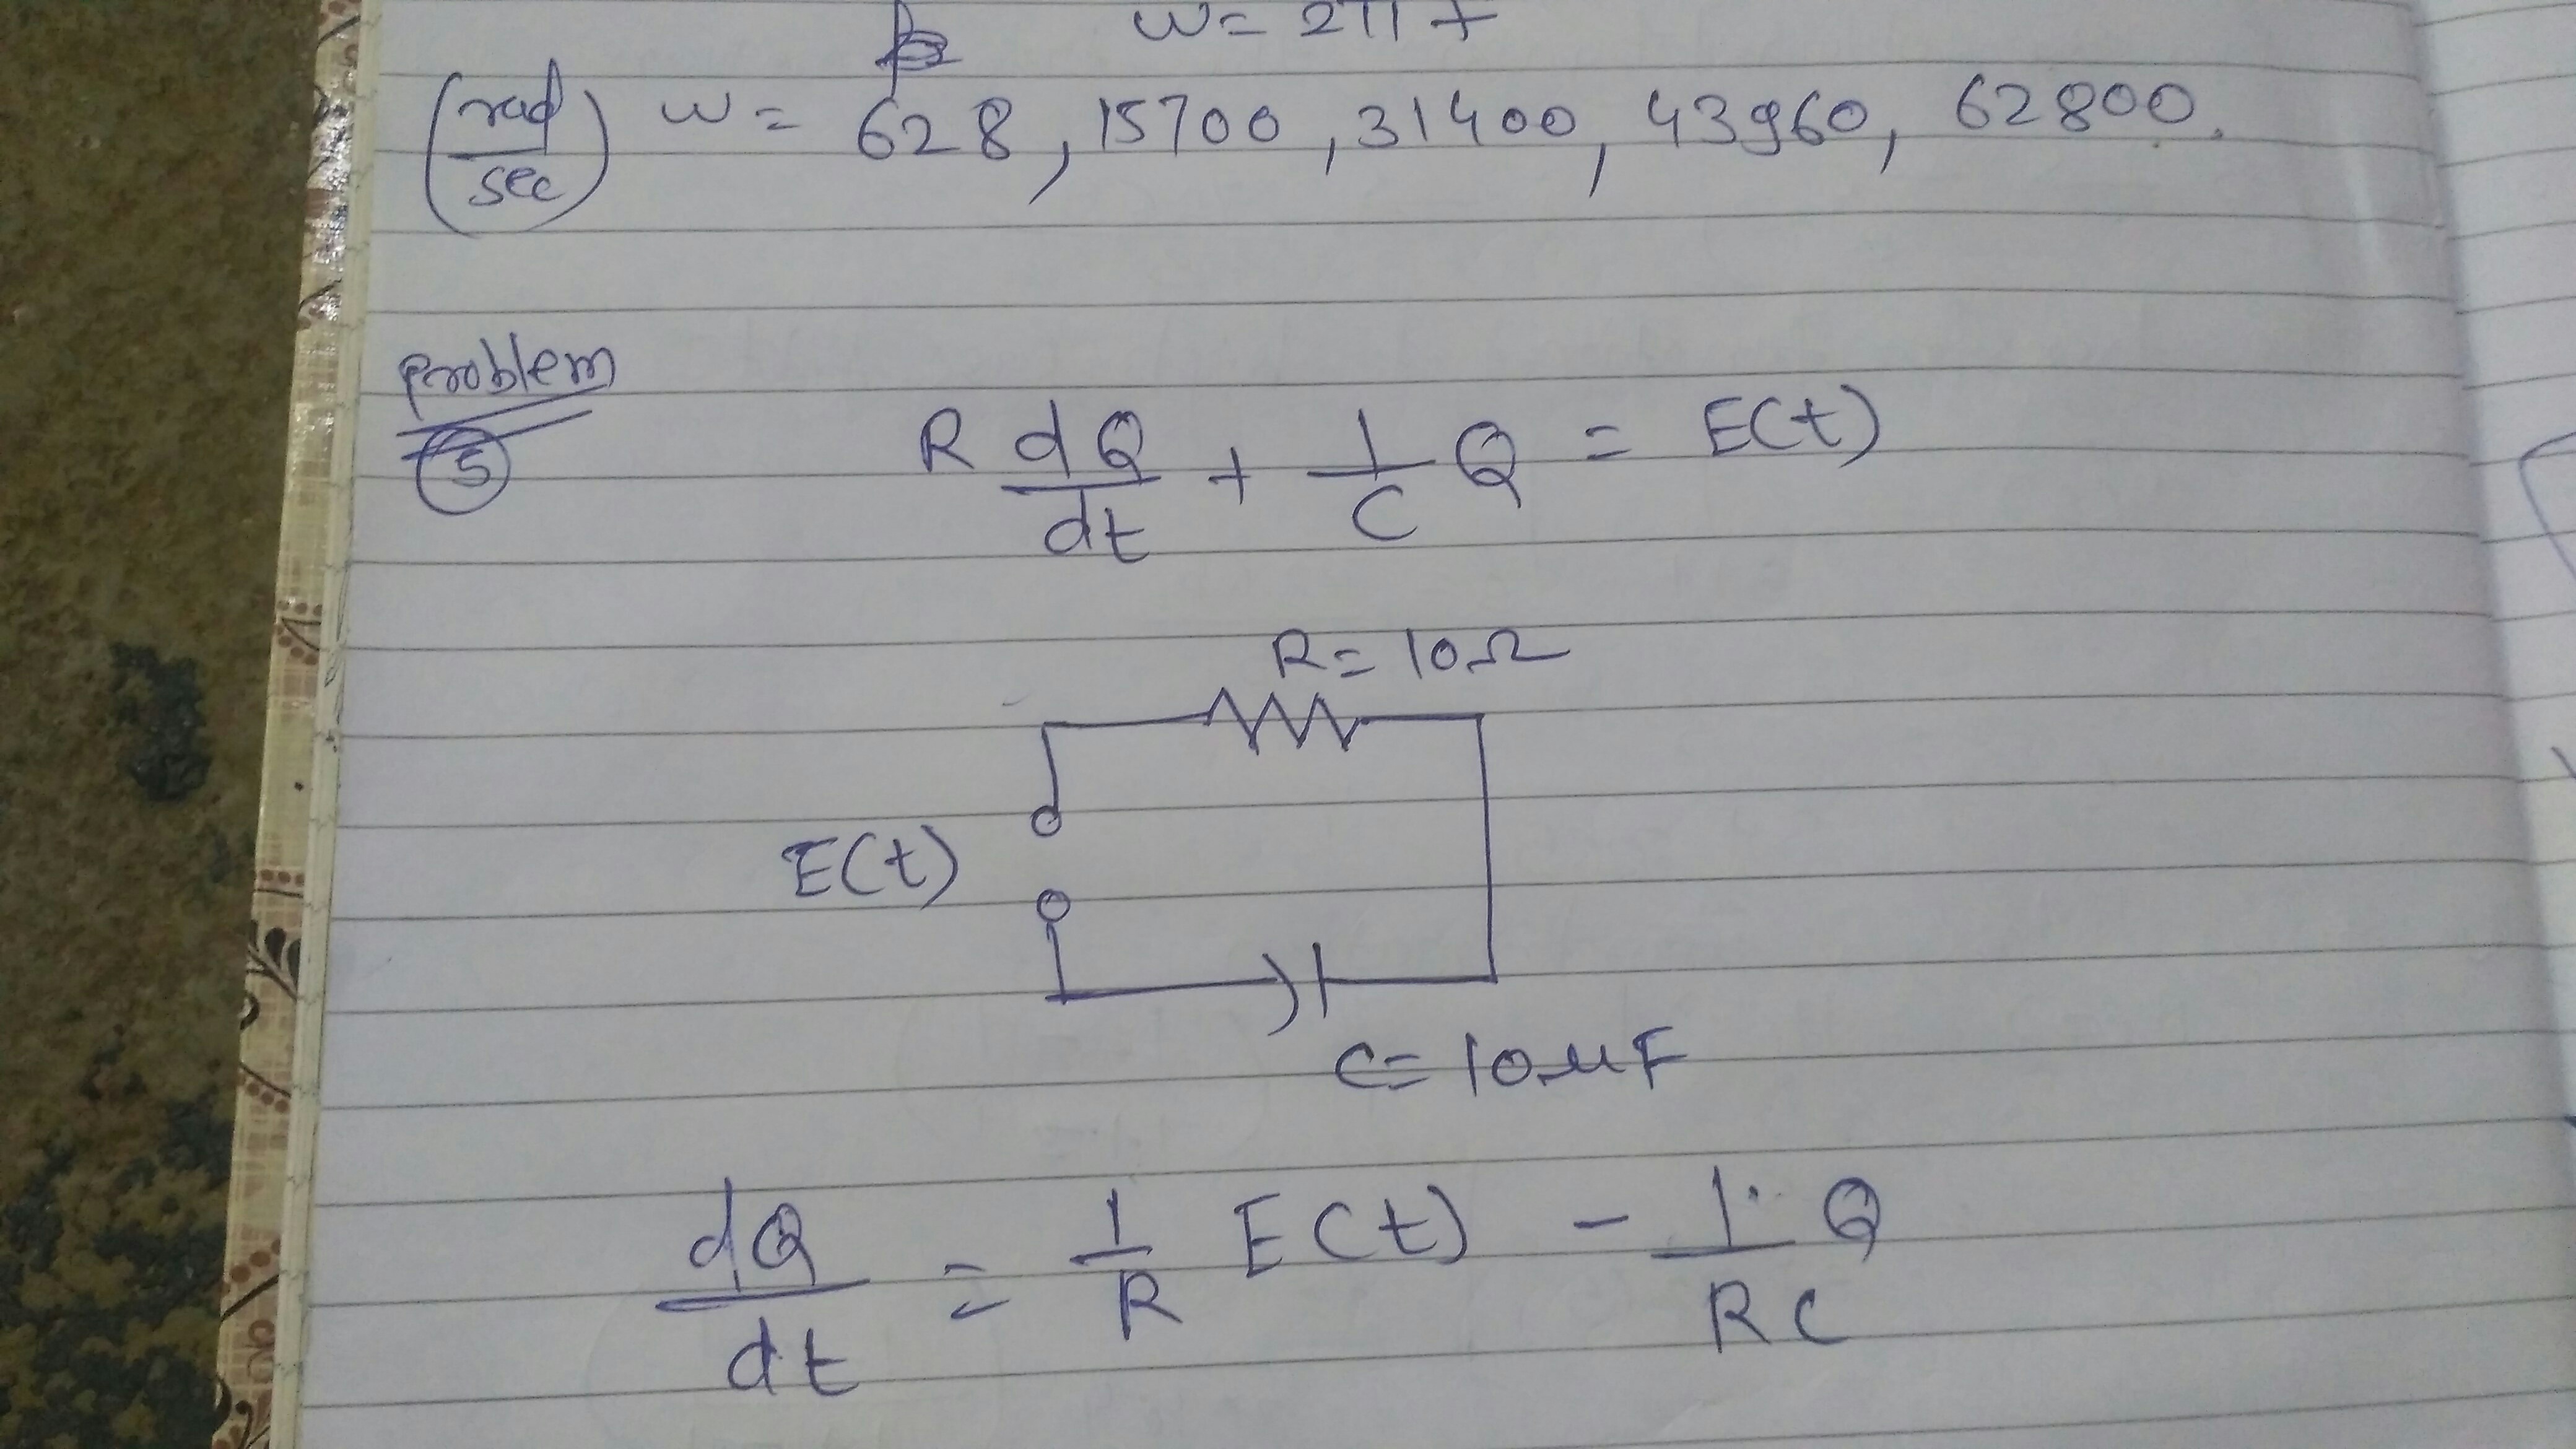 w = 2πf
(rad/sec) w = 628, 15700, 31400, 43960, 62800.
Problem
5
R dQ/dt + 1/C Q = E(t)
R = 10Ω
E(t)
C = 10μF
dQ/dt = 1/R E(t) - 1/RC Q